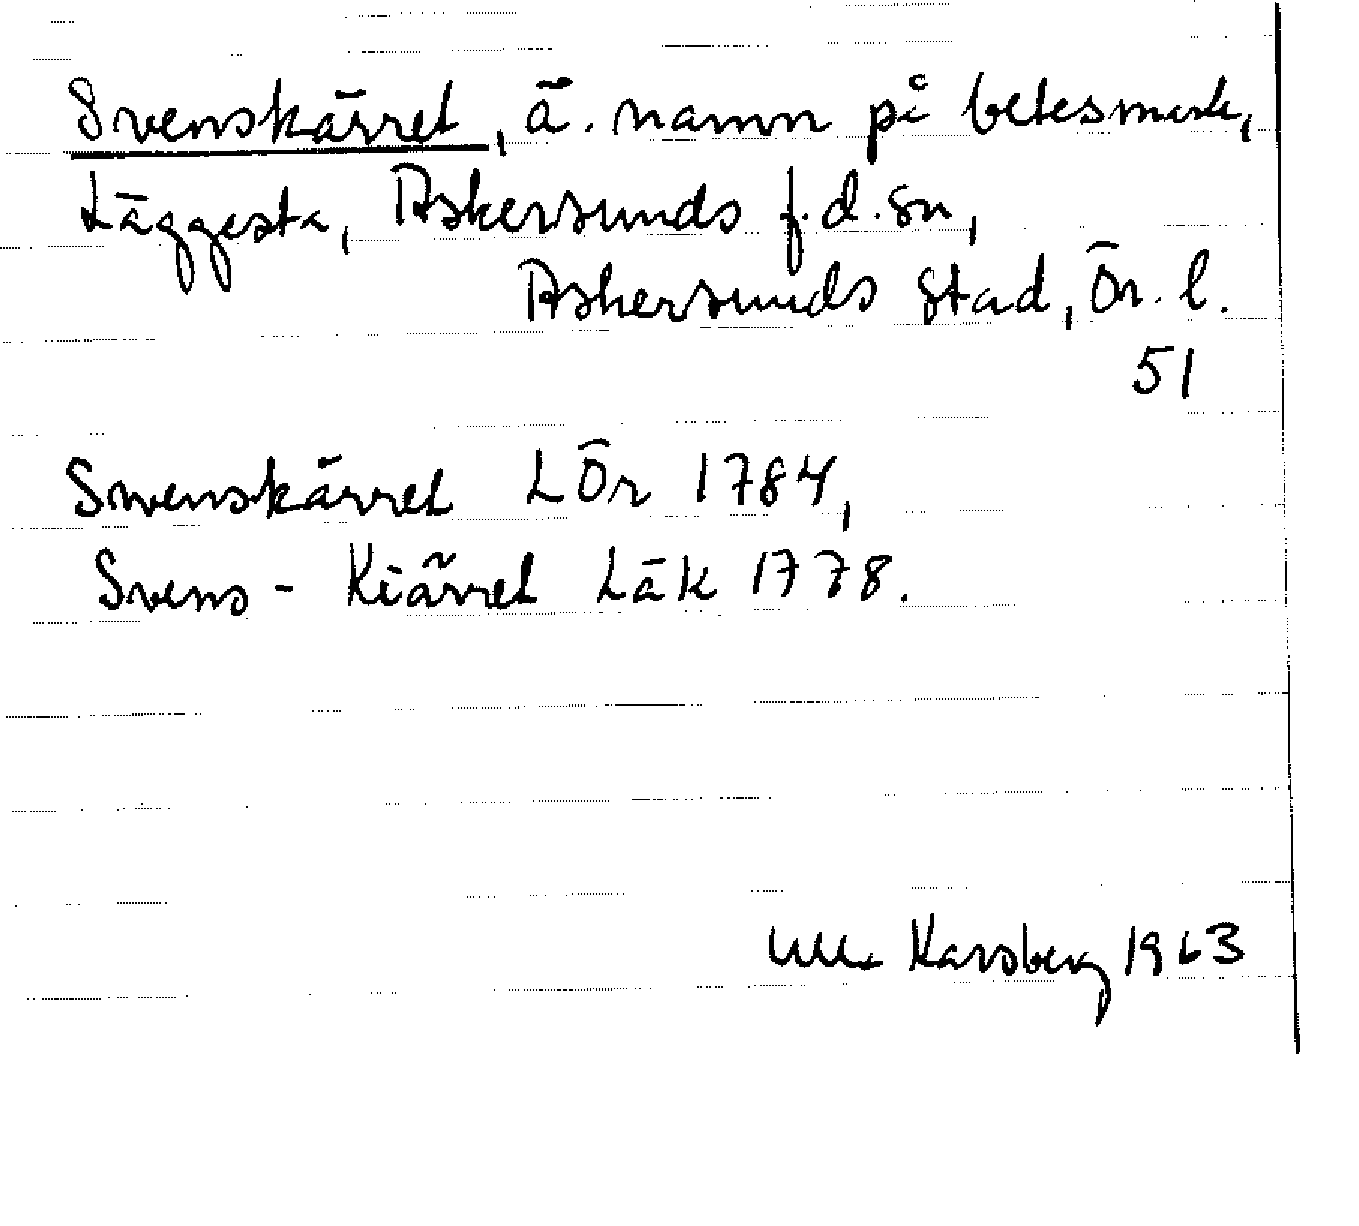 Svenskärret, ä. namn på betesmark,
Läggesta, Askersunds f.d. sn,
Askersunds stad, Ör. l.
51
Swenskärret LÖr 1784,
Svens - Kiärret Läk 1778.
Ulla Karsberg 1963